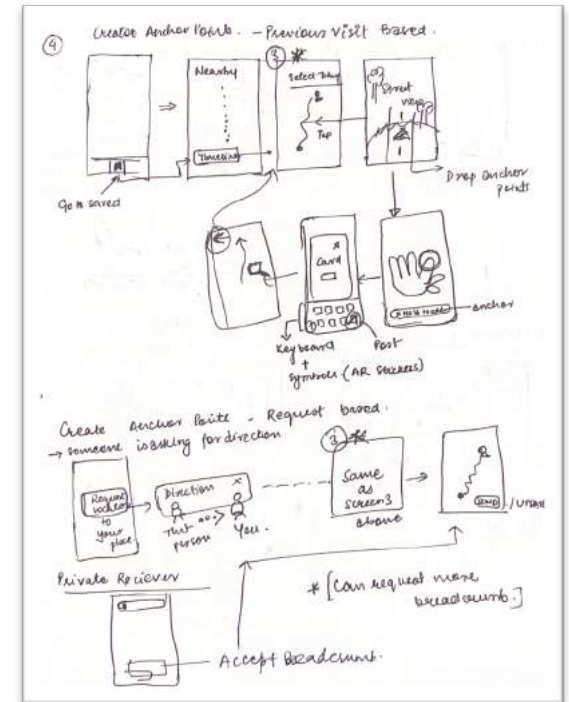 ④ Creator Anchor Points. - Previous Visit Based.
Nearby
Timeline
③ *
Select Day
Tap
Street
view
Go to saved
Drop anchor
points
Card
anchor
Keyboard
+
symbols (AR stickers)
Post
Create Anchor Points - Request based.
→ someone is asking for direction
Request
to
your
place
Direction ×
That
person
You.
③ *
Same
as
screen 3
above
SEND
/ Update
Private Reciever
* [Can request more
breadcrumb.]
Accept Breadcrumb.